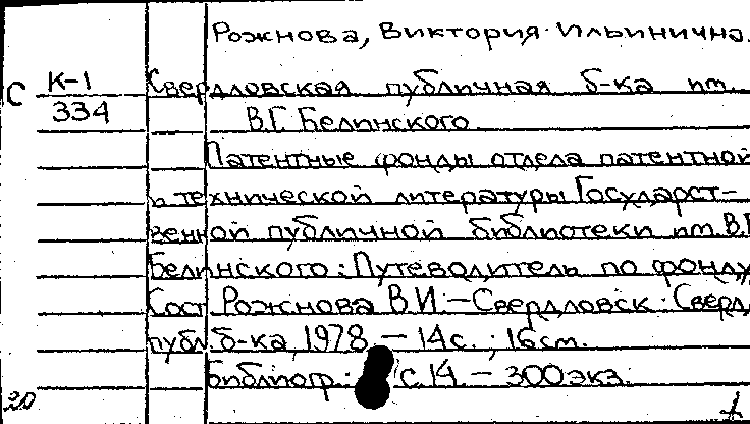 Рожнова, Виктория Ильинична.
С К-1 Свердловская публичная б-ка им.
334 В.Г. Белинского
Патентные фонды отдела патентной
и технической литературы Государст-
венной публичной библиотеки им. В.Г.
Белинского: Путеводитель по фонду
Сост. Рожнова В.И. – Свердловск: Сверд.
публ. б-ка, 1978 – 14 с.; 16 см.
Библиогр.: с. 14. – 300 экз.
20 1